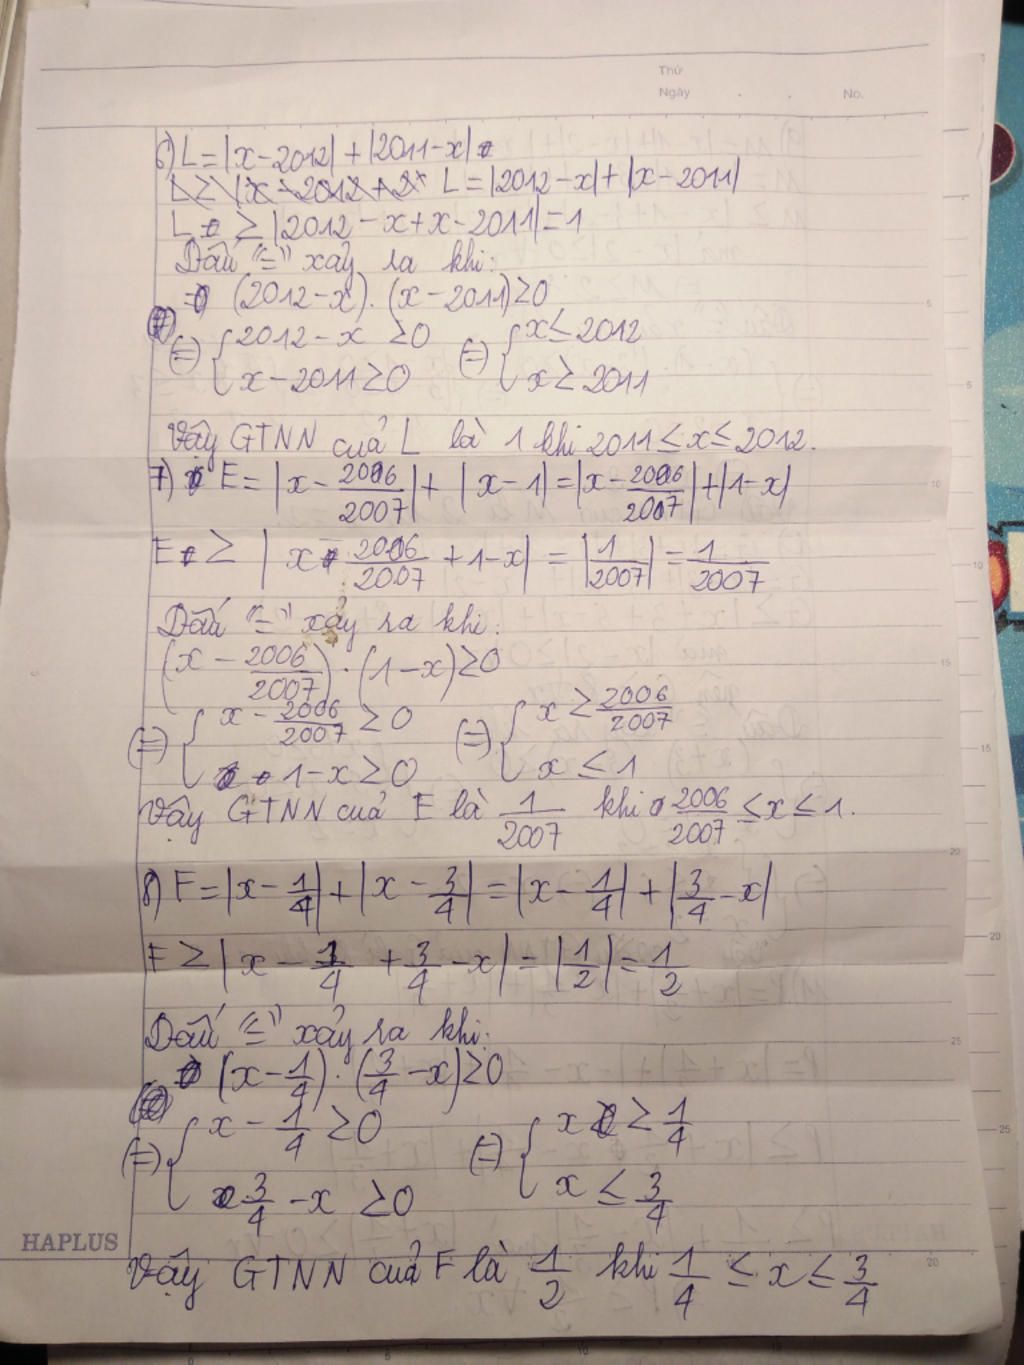 Thứ
Ngày . . No.
6) L = |x - 2012| + |2011 - x|
L = |2012 - x| + |x - 2011|
L ≥ |2012 - x + x - 2011| = 1
Dấu "=" xảy ra khi:
(2012 - x) . (x - 2011) ≥ 0
(=) { 2012 - x ≥ 0 (=) { x ≤ 2012
x - 2011 ≥ 0 x ≥ 2011
Vậy GTNN của L là 1 khi 2011 ≤ x ≤ 2012.
7) E = |x - 2006/2007| + |x - 1| = |x - 2006/2007| + |1 - x|
E ≥ |x - 2006/2007 + 1 - x| = |1/2007| = 1/2007
Dấu "=" xảy ra khi:
(x - 2006/2007) . (1 - x) ≥ 0
(=) { x - 2006/2007 ≥ 0 (=) { x ≥ 2006/2007
1 - x ≥ 0 x ≤ 1
Vậy GTNN của E là 1/2007 khi 2006/2007 ≤ x ≤ 1.
8) F = |x - 1/4| + |x - 3/4| = |x - 1/4| + |3/4 - x|
F ≥ |x - 1/4 + 3/4 - x| = |1/2| = 1/2
Dấu "=" xảy ra khi:
(x - 1/4) . (3/4 - x) ≥ 0
(=) { x - 1/4 ≥ 0 (=) { x ≥ 1/4
3/4 - x ≥ 0 x ≤ 3/4
HAPLUS
Vậy GTNN của F là 1/2 khi 1/4 ≤ x ≤ 3/4